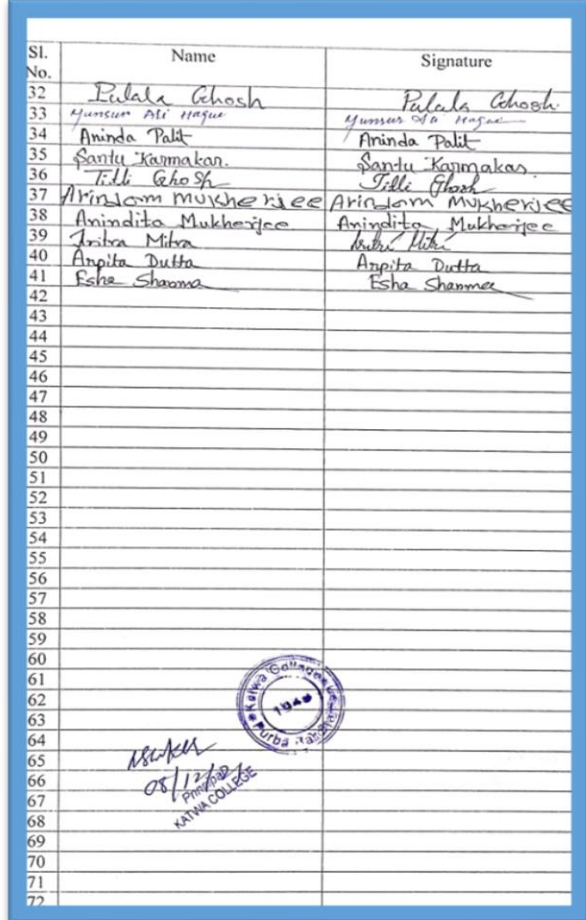 Sl. No. Name Signature
32 Pulala Ghosh Pulala Ghosh
33 Yunsur Ali Haque Yunsur Ali Haque
34 Aninda Palit Aninda Palit
35 Santu Karmakar. Santu Karmakar.
36 Titli Ghosh Titli Ghosh
37 Arindam Mukherjee Arindam Mukherjee
38 Anindita Mukherjee Anindita Mukherjee
39 Mitra Mitra
40 Arpita Dutta Arpita Dutta
41 Esha Sharma Esha Sharma
42
43
44
45
46
47
48
49
50
51
52
53
54
55
56
57
58
59
60
61
62
63
64
65
66
67
68
69
70
71
72
Katwa College
1948
Purba
08/12/
Principal
KATWA COLLEGE